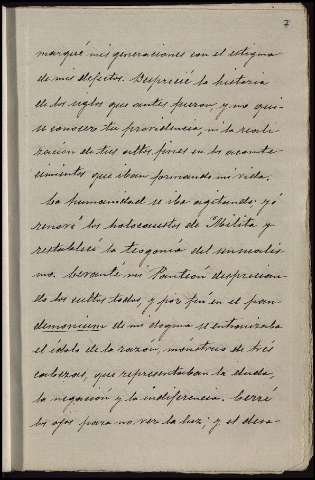 7
marqué mis generaciones con el estigma
de mis defectos. Desprecié la historia
de los siglos que antes fueron, y no qui-
se conocer tu providencia, ni la reali-
zacion de tus altos fines en los aconte-
cimientos que iban formando mi vida.
La humanidad se iba agitando: yo
renové los holocaustos de Milita y
restablecí la teogonía del sensualis-
mo. Levanté mi Panteón desprecian-
do los cultos todos, y por fin en el pan-
demonium de mi dogma se entronizaba
el ídolo de la razón, mónstruo de tres
cabezas, que representaban la duda,
la negación y la indiferencia. Cerré
los ojos para no ver la luz; y el desa-